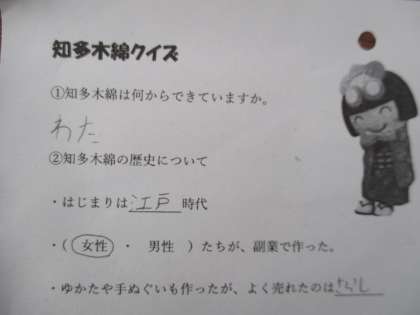 知多木綿クイズ
①知多木綿は何からできていますか。
わた
②知多木綿の歴史について
・はじまりは江戸時代
・（ 女性 ・ 男性 ）たちが、副業で作った。
・ゆかたや手ぬぐいも作ったが、よく売れたのはさらし